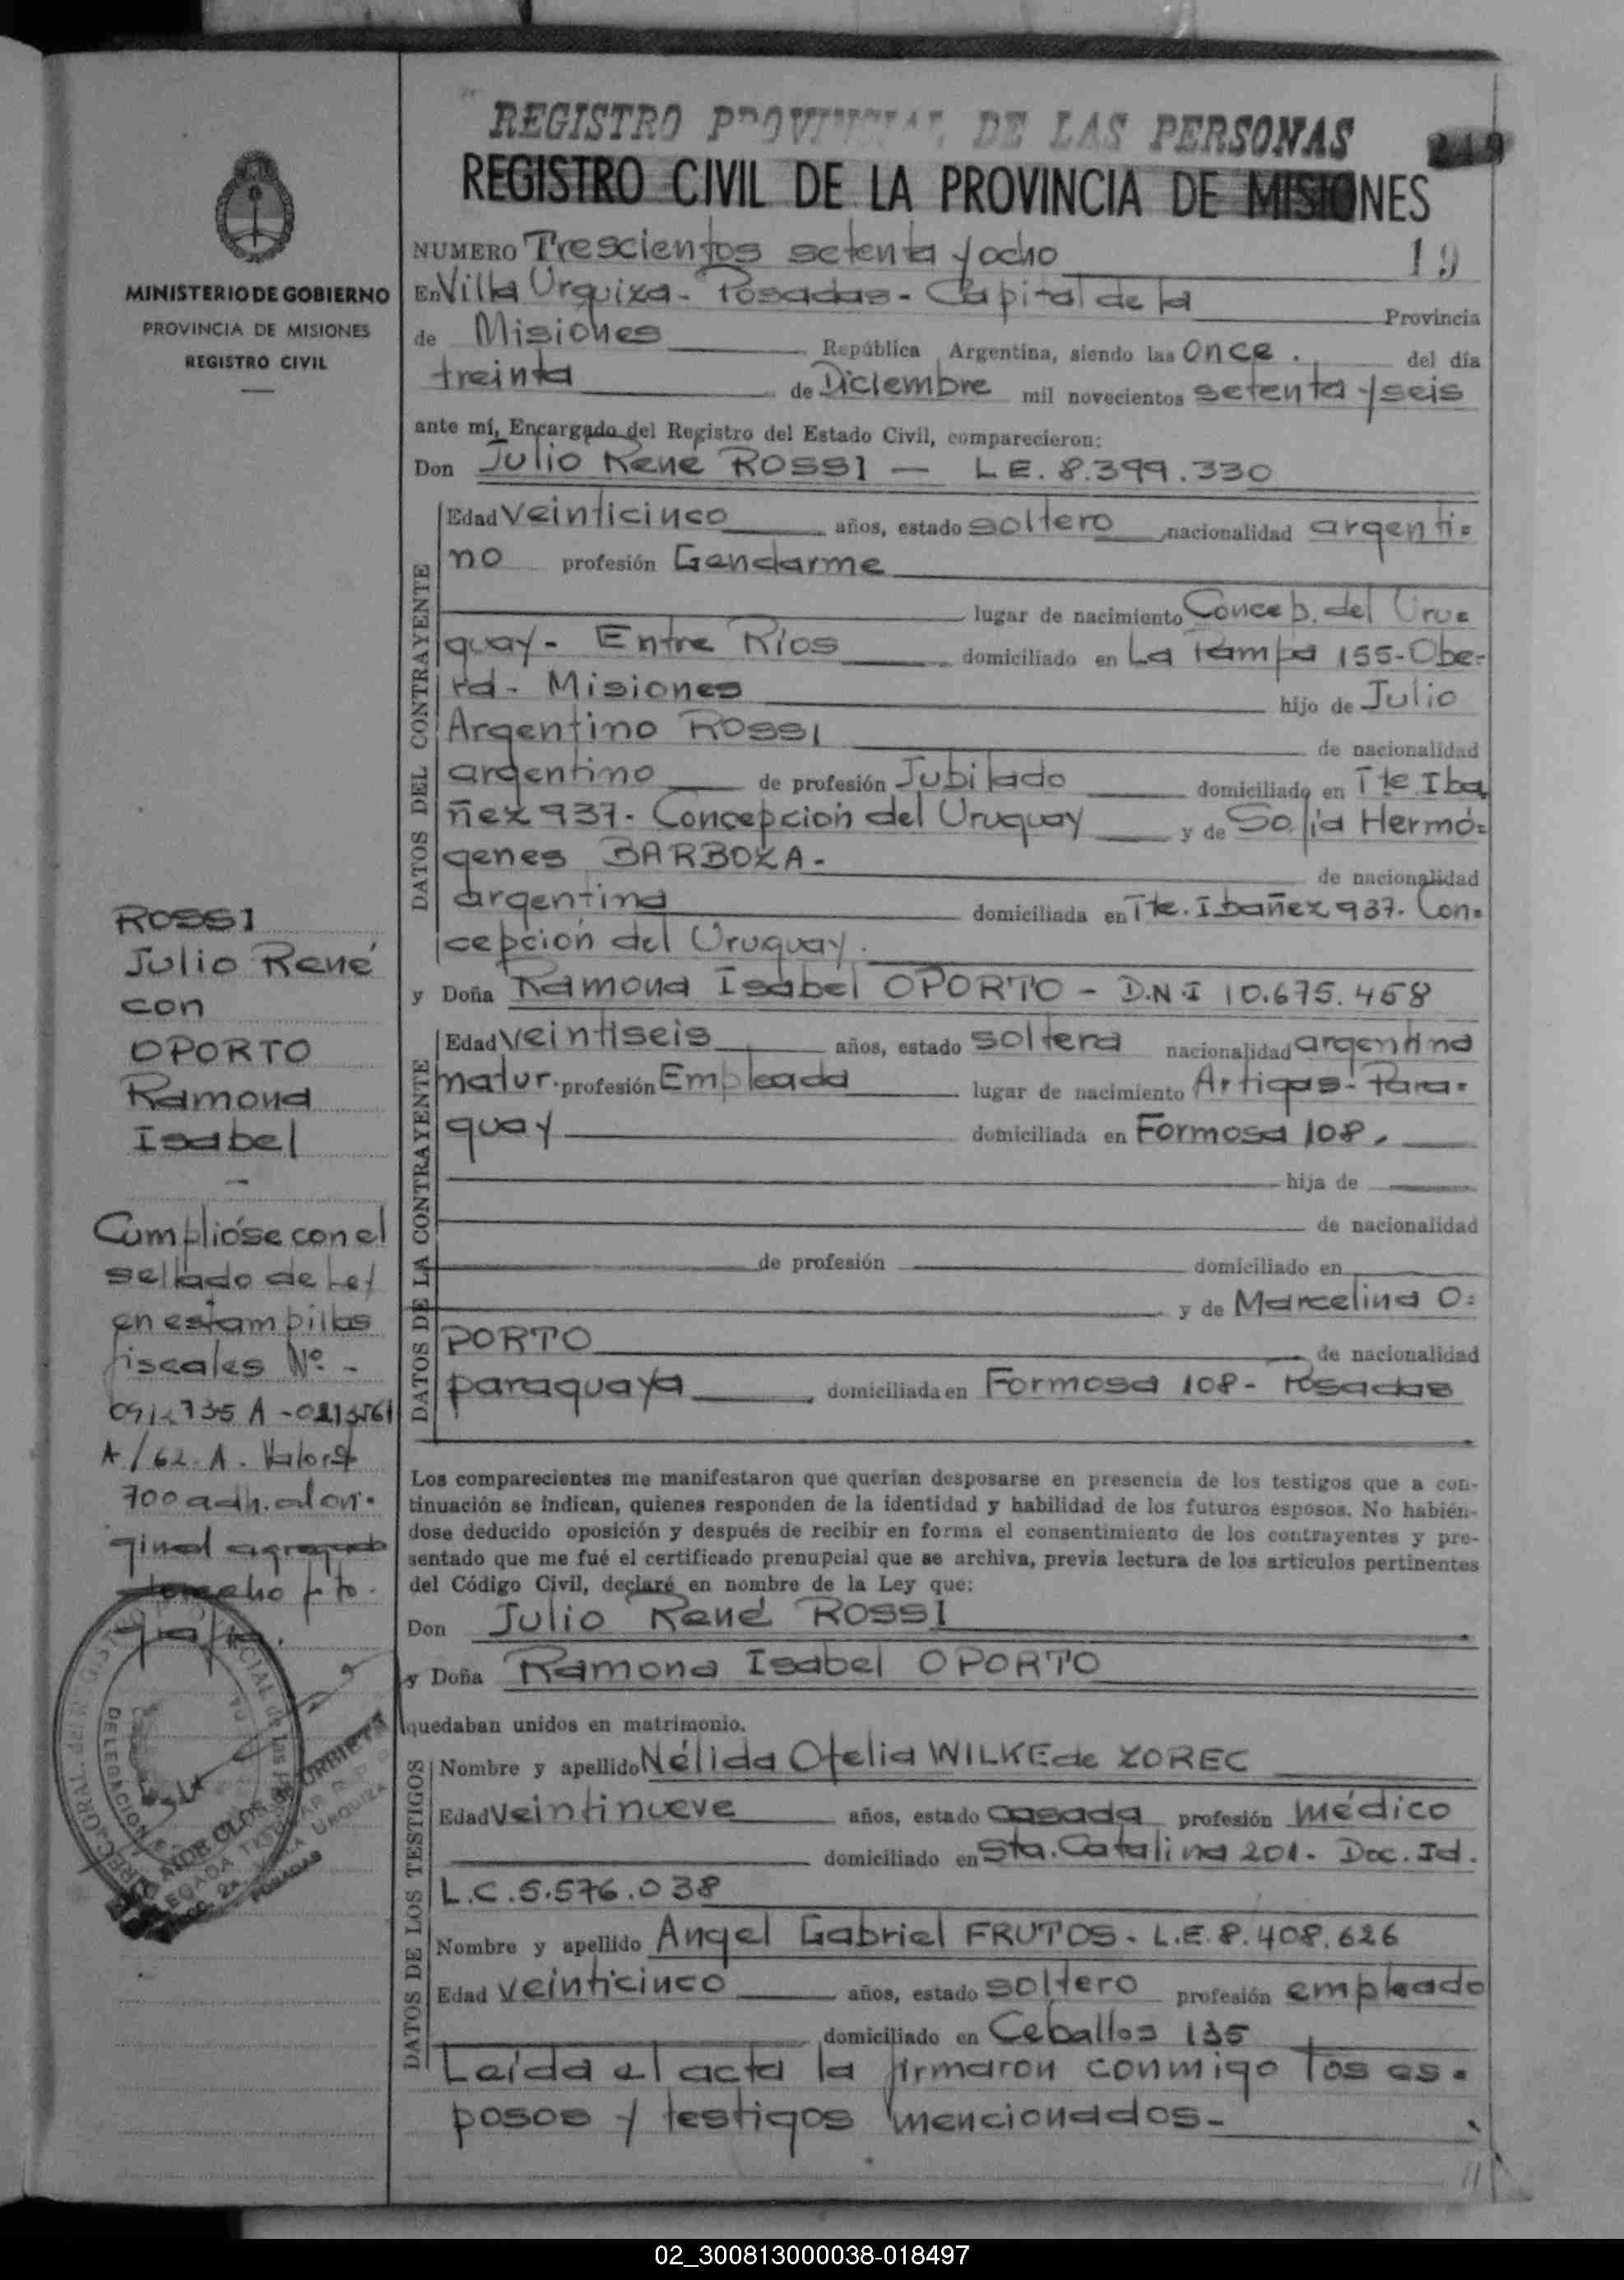 REGISTRO PROVINCIAL DE LAS PERSONAS
219
REGISTRO CIVIL DE LA PROVINCIA DE MISIONES
MINISTERIO DE GOBIERNO
PROVINCIA DE MISIONES
REGISTRO CIVIL
NUMERO Trescientos setenta y ocho 19
En Villa Urquiza - Posadas - Capital de la Provincia
de Misiones República Argentina, siendo las Once . del día
treinta de Diciembre mil novecientos setenta y seis
ante mí, Encargado del Registro del Estado Civil, comparecieron:
Don Julio René ROSSI — L E. 8.399.330
DATOS DEL CONTRAYENTE
Edad veinticinco años, estado soltero nacionalidad argenti=
no profesión Gendarme
lugar de nacimiento Concep. del Uru=
guay - Entre Ríos domiciliado en La Pampa 155 - Obe-
rá - Misiones hijo de Julio
Argentino ROSSI de nacionalidad
argentino de profesión Jubilado domiciliado en Tte Iba
ñez 937 - Concepción del Uruguay y de Sofia Hermó=
genes BARBOZA - de nacionalidad
argentina domiciliada en Tte. Ibañez 937. Con=
cepción del Uruguay.
y Doña Ramona Isabel OPORTO - D.N.I 10.675.458
DATOS DE LA CONTRAYENTE
Edad veintiseis años, estado soltera nacionalidad argentina
natur. profesión Empleada lugar de nacimiento Artigas - Para=
guay domiciliada en Formosa 108 .
hija de
de nacionalidad
de profesión domiciliado en
y de Marcelina O=
PORTO de nacionalidad
paraguaya domiciliada en Formosa 108 - Posadas
Los comparecientes me manifestaron que querían desposarse en presencia de los testigos que a con-
tinuación se indican, quienes responden de la identidad y habilidad de los futuros esposos. No habién-
dose deducido oposición y después de recibir en forma el consentimiento de los contrayentes y pre-
sentado que me fué el certificado prenupcial que se archiva, previa lectura de los artículos pertinentes
del Código Civil, declaré en nombre de la Ley que:
Don Julio René ROSSI
y Doña Ramona Isabel OPORTO
quedaban unidos en matrimonio.
DATOS DE LOS TESTIGOS
Nombre y apellido Nélida Ofelia WILKE de ZOREC
Edad veintinueve años, estado casada profesión médico
domiciliado en Sta. Catalina 201 - Doc. Id.
L.C. 5.576.038
Nombre y apellido Angel Gabriel FRUTOS - L.E. 8.408.626
Edad veinticinco años, estado soltero profesión empleado
domiciliado en Ceballos 135
Leída el acta la firmaron conmigo los es=
posos y testigos mencionados -
ROSSI
Julio René
con
OPORTO
Ramona
Isabel
Cumplióse con el
sellado de Ley
en estampillas
fiscales Nº -
A/62-A. Valor $
700 adh. al ori=
ginal agregado
DELEGACION
AIDE OLOS de URBIETA
DELEGADA TITULAR R.P.P.
SECC. 2A. VILLA URQUIZA
POSADAS
02_300813000038-018497